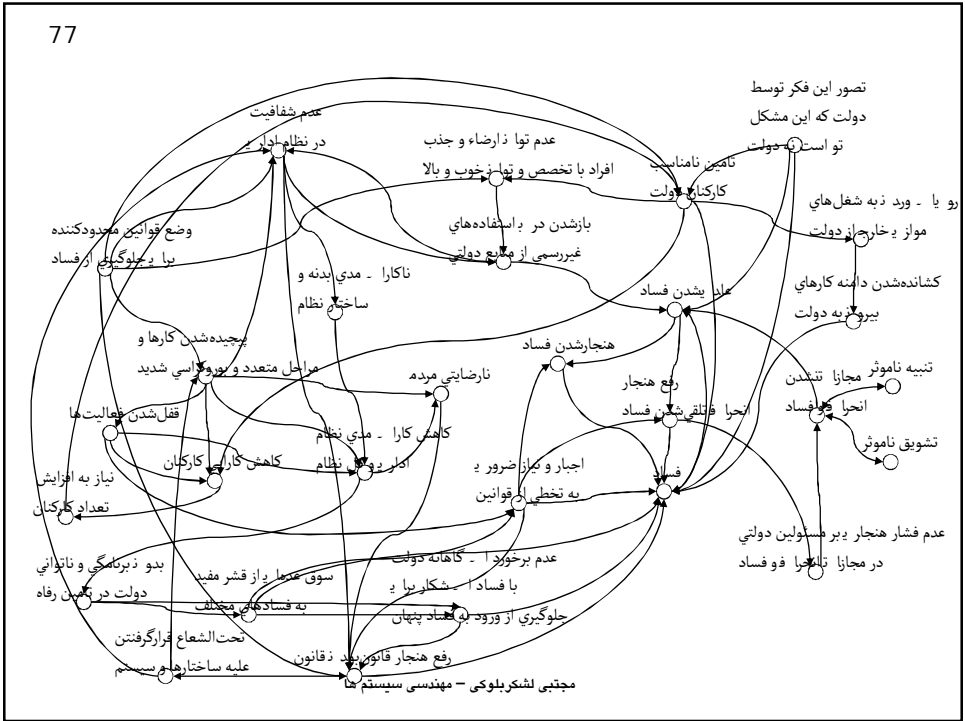 77
تصور این فکر توسط
دولت که این مشکل
دولت
عدم شفافیت
در نظام اداري
عدم توا نارضاء و جذب
افراد با تخصص و توان خوب و بالا
تامین نامناسب
کارکنان دولت
به شغل‌هاي
موازي خارج از دولت
وضع قوانین محدودکننده
براي جلوگیري از فساد
بازشدن در
غیررسمی از منابع دولتي
ناکارا مدي بدنه و
ساختار نظام
کشانده‌شدن دامنه کارهاي
به دولت
شدن فساد
پیچیده‌شدن کارها و
مراحل متعدد و بوروکراسي شدید
هنجارشدن فساد
نارضایتي مردم
رفع هنجار
شدن فساد
تنبیه ناموثر
مجازا تنشدن
فساد
قفل‌شدن فعالیت‌ها
کاهش کارا مدي نظام
نظام
تشویق ناموثر
کاهش کارایي کارکنان
نیاز به افزایش
تعداد کارکنان
اجبار و نیاز ضرور ي
به تخطي از قوانین
فساد
عدم فشار هنجار ي بر مسئولین دولتي
در مجازا فساد
و ناتواني
دولت در تامین رفاه
سوق از قشر مفید
به فسادهاي مختلف
عدم برخورد گاهانه دولت
با فساد شکار برا ي
جلوگیري از ورود به فساد پنهان
تحت‌الشعاع قرارگرفتن
علیه ساختارها و سیستم
رفع هنجار قانون
مجتبی لشکربلوکی – مهندسی سیستم ها